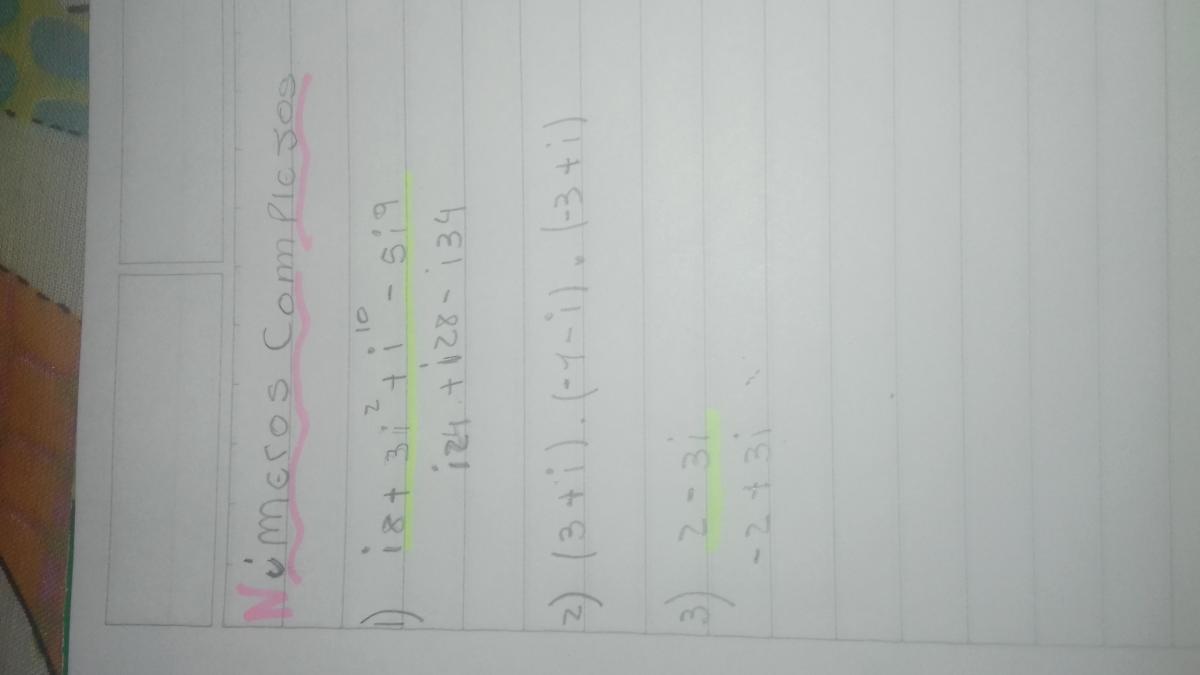 Números Complejos
1) i8 + 3i² + i¹⁰ - 5i9
i24 + i28 - i34
2) (3+i).(-1-i).(-3+i)
3) 2 - 3i
-2 + 3i